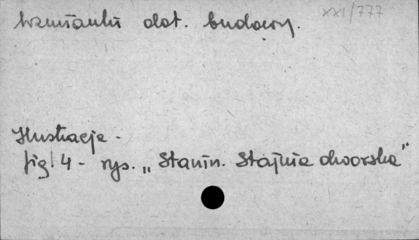 wzmianki dot. budowy.
XXI/777
Ilustracje -
fig 4 - rys. „Stanin. Stajnia dworska"